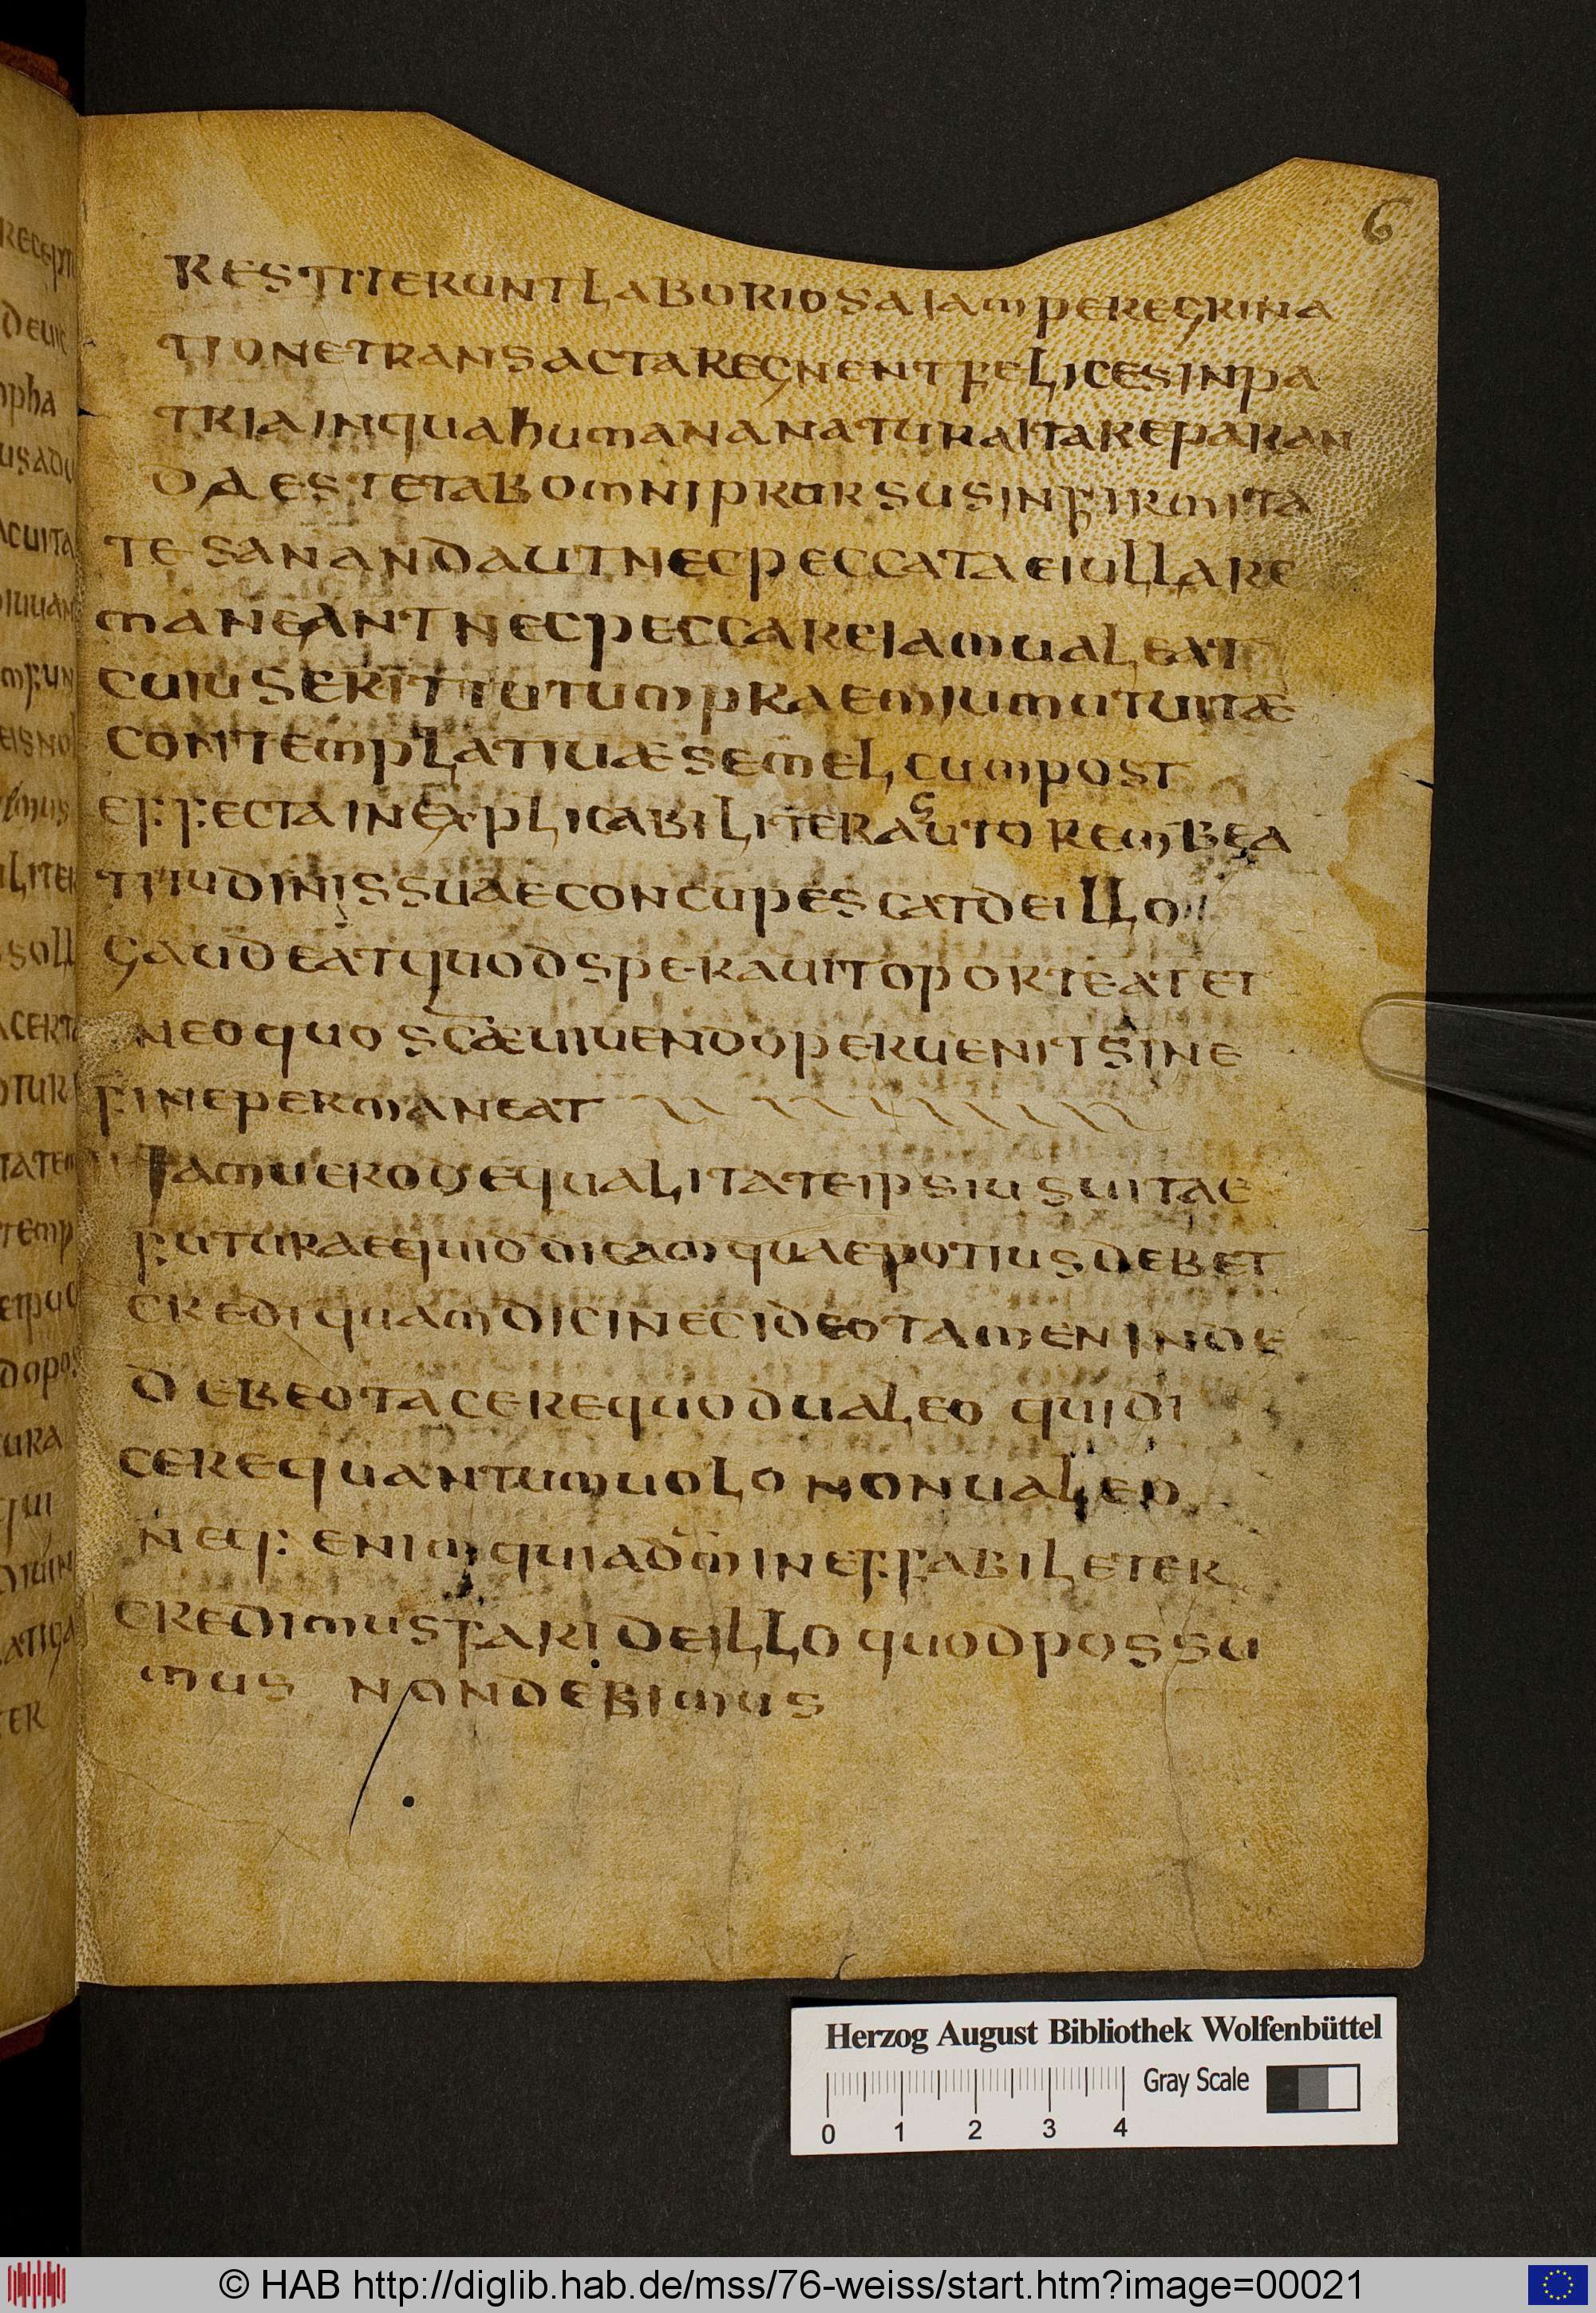 6
RESTITERUNTLABORIOSAIAMPEREGRINA
TIONETRANSACTAREGNENTFELICESINPA
TRIAINQUAHUMANANATURAITAREPARAN
DAESTETABOMNIPRORSUSINFIRMITA
TESANANDAUTNECPECCATAEIULLARE
MANEANTNECPECCAREIAMUALEAT
CUIUSERITTUTUMPRAEMIUMUTUITÆ
CONTEMPLATIUÆSEMEL, CUMPOST
EFFECTAINEXPLICABILITERAUCTOREMBEA
TITUDINISSUAECONCUPESCATDEILLO
GAUDEATQUODSPERAUITOPORTEATET
NEOQUOSCÆUIUENDOPERUENITSINE
FINEPERMANEAT
IAMUERODEQUALITATEIPSIUSUITAE
FUTURAEQUIDDICAMQUAEPOTIUSDEBET
CREDIQUAMDICINECIDEOTAMENINDE
DEBEOTACEREQUODUALEO QUIDI
CEREQUANTUMUOLO NONUALEO
NEQ: ENIMQUIADM̄INEFFABILETER
CREDIMUSFARIDEILLO QUODPOSSU
MUS NONDEBIMUS
RECEPTI
DEUIC
MPHA
USADU
ACUITA
IUUAN
MFUN
EISNO
LITER
SOLL
ACERTA
OTURA
TATEM
TEMP
EIPUG
DOPOS
URA
QUI
DIUIN
ATIGA
TER
Herzog August Bibliothek Wolfenbüttel
Gray Scale
0 1 2 3 4
© HAB http://diglib.hab.de/mss/76-weiss/start.htm?image=00021